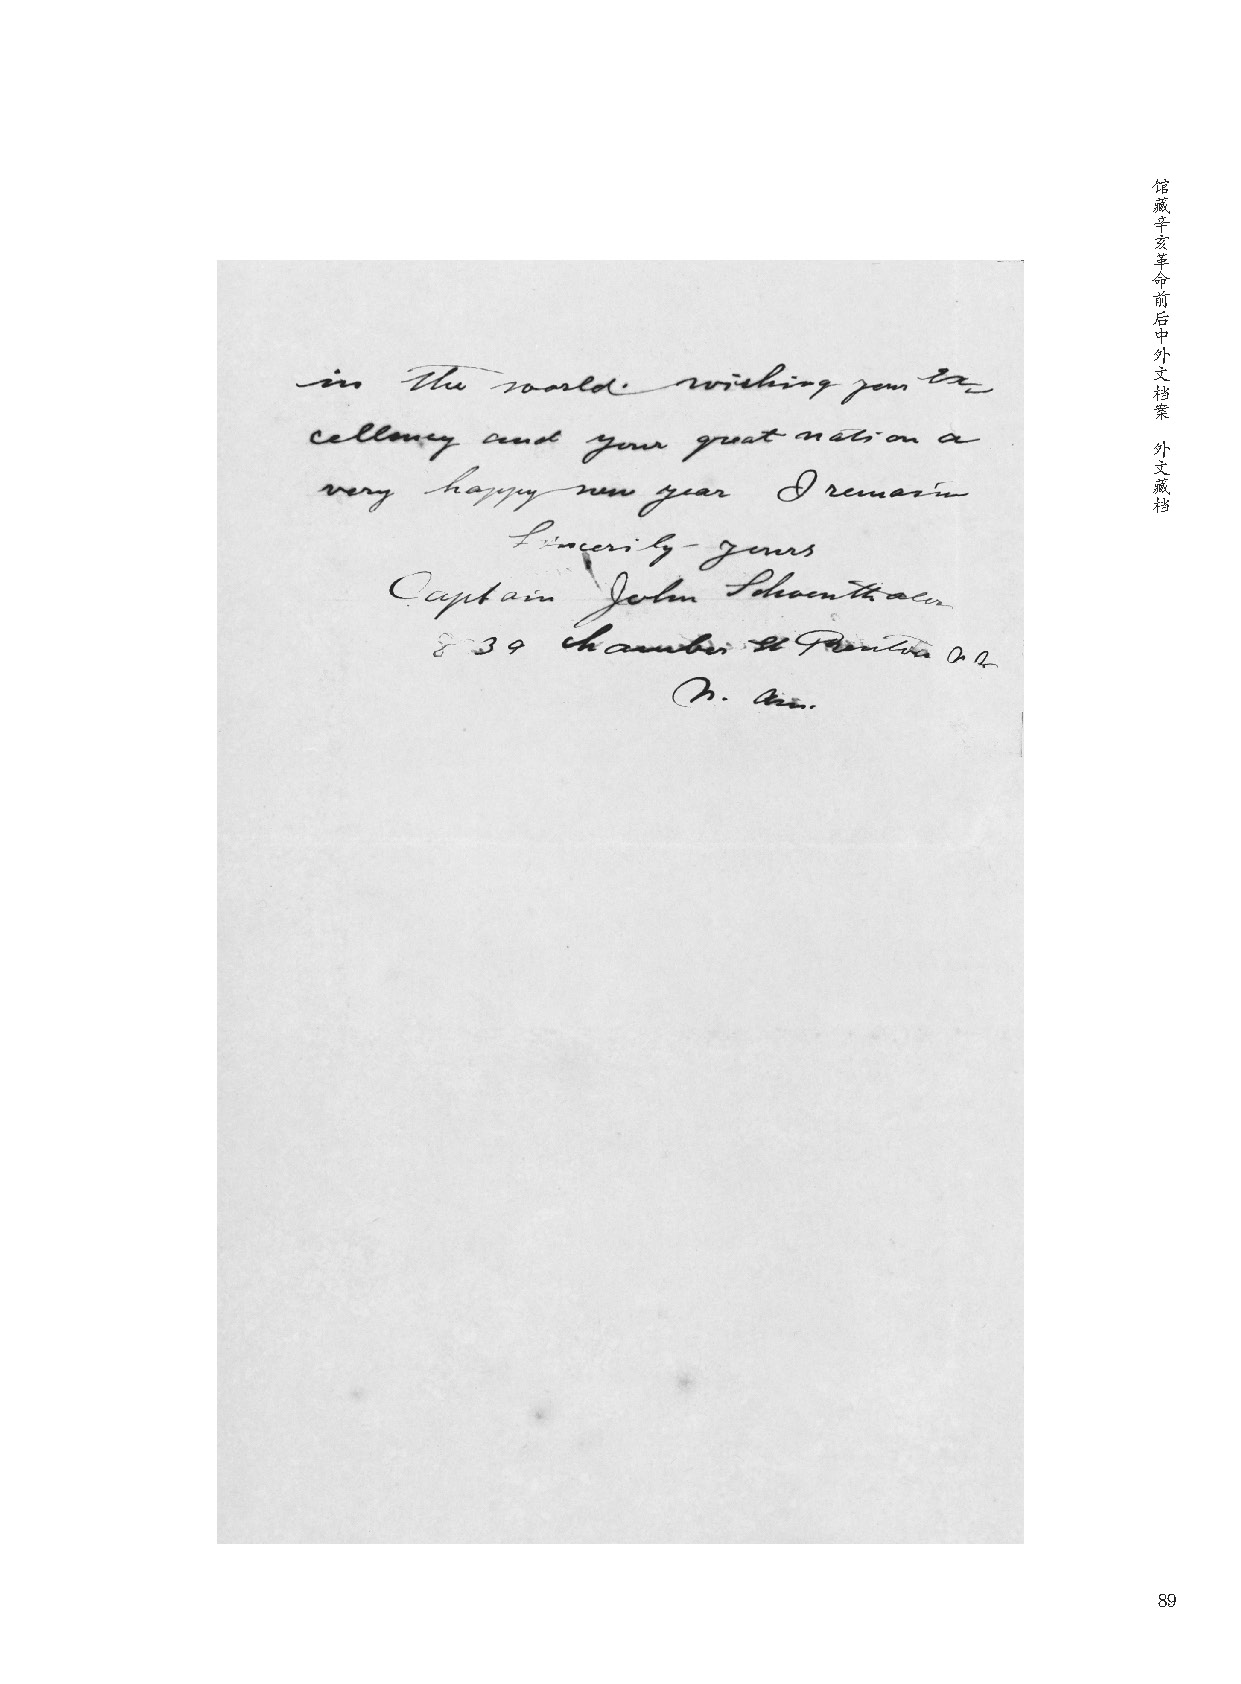 馆藏辛亥革命前后中外文档案 外文藏档
in the world. wishing your Ex-
cellency and your great nation a
very happy new year I remain
Sincerily yours
Captain John Schoenthaler
839 Chamber St Trenton N. J.
N. Am.
89